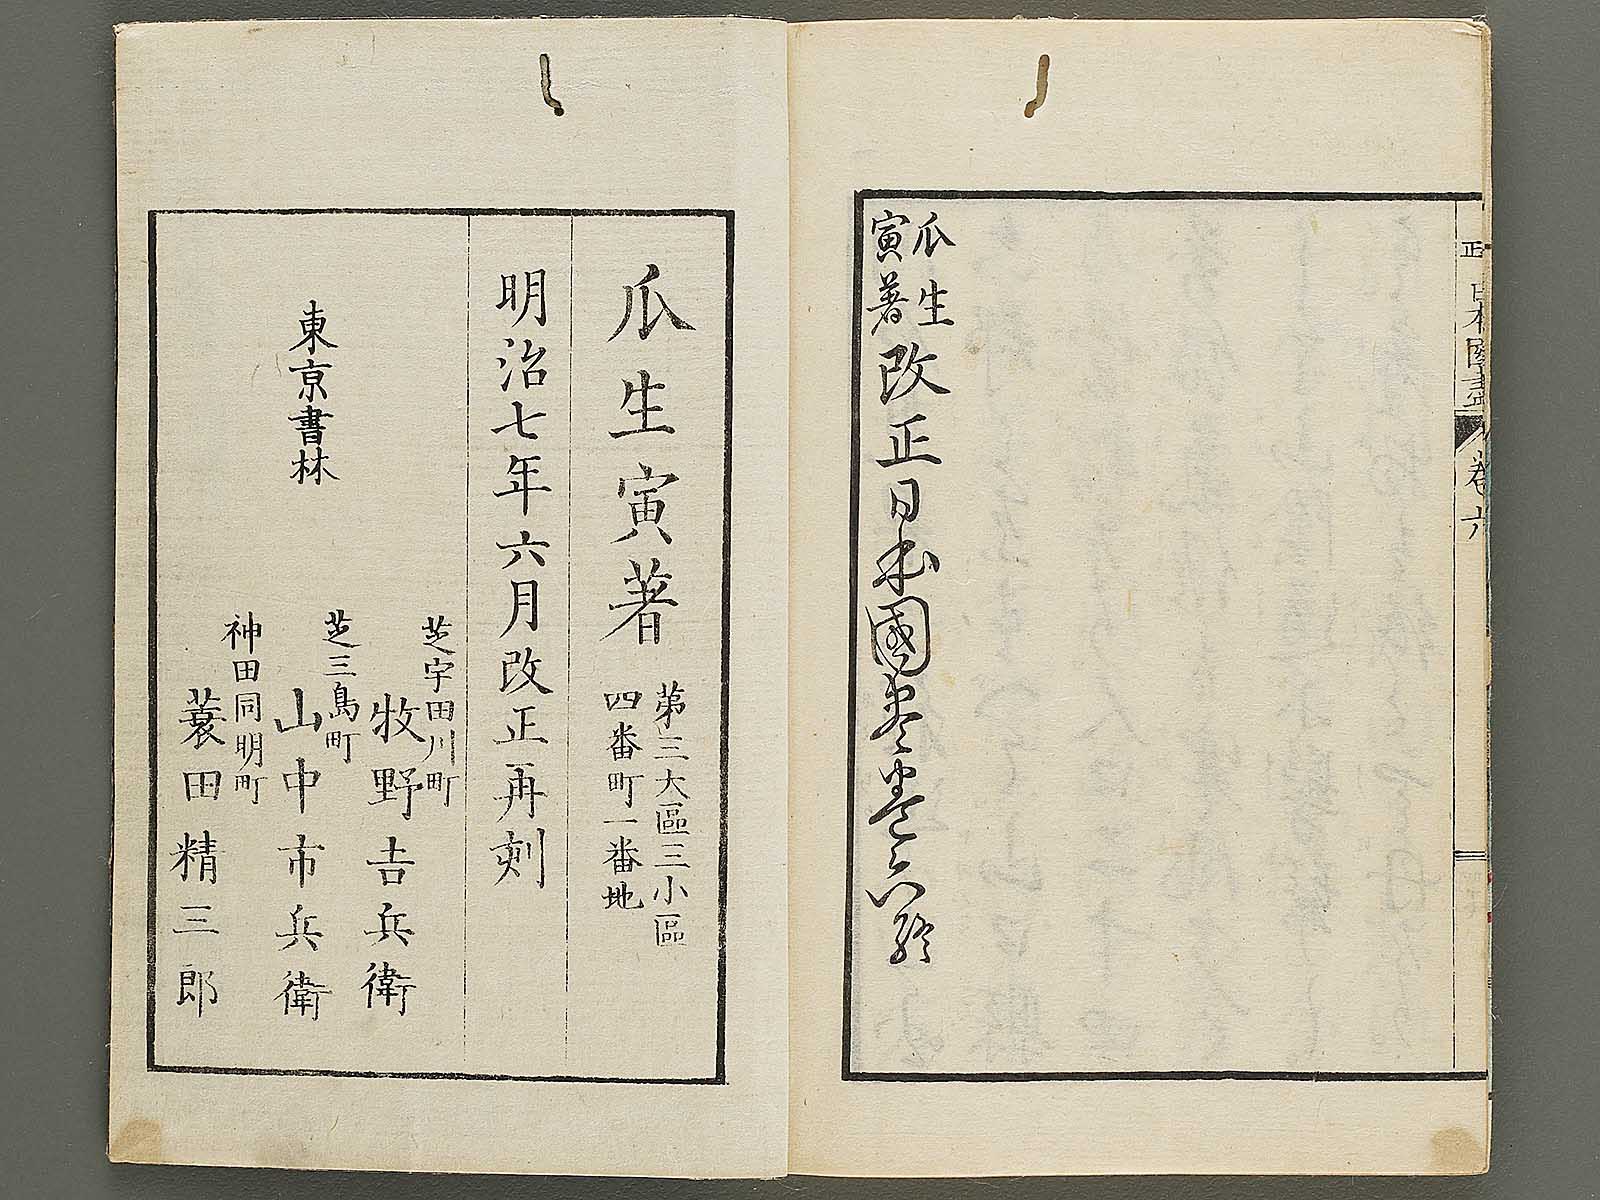 正
日本國盡
卷六
瓜生
寅著
改正日本國盡卷之六終
瓜生寅著
第三大區三小區
四番町一番地
明治七年六月改正再刻
東京書林
芝宇田川町
牧野吉兵衛
芝三島町
山中市兵衛
神田同明町
蓑田精三郎